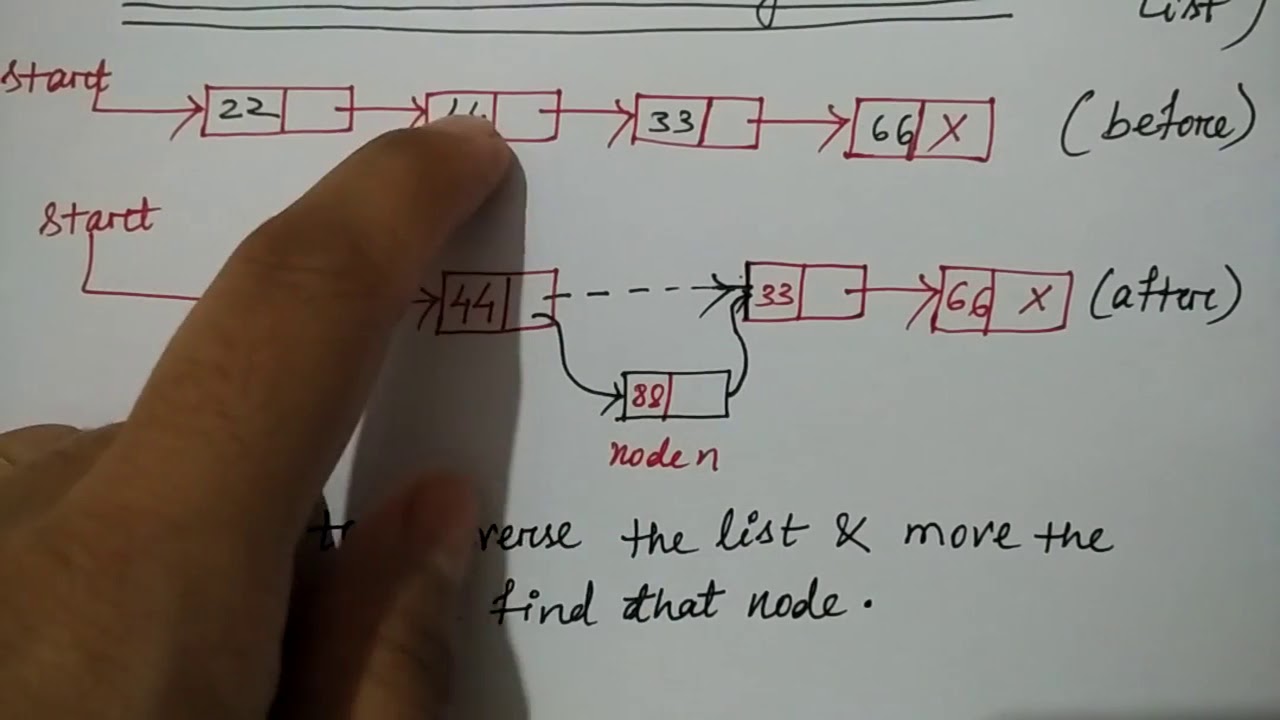 List)
start
22 44 33 66 X (before)
start
44 33 66 X (after)
88
node n
verse the list & move the
find that node.